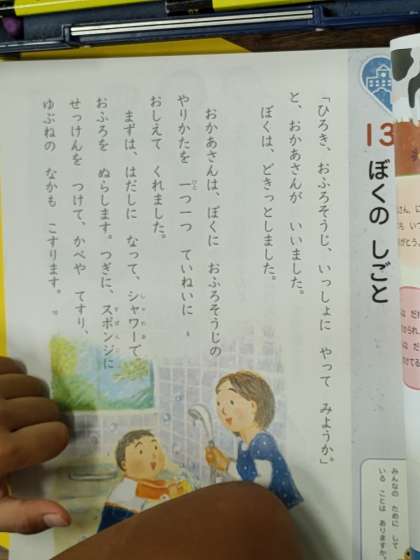 13
ぼくの しごと
「ひろき、おふろそうじ、いっしょに やって みようか」
と、おかあさんが いいました。
ぼくは、どきっとしました。
おかあさんは、ぼくに おふろそうじの
やりかたを 一つ一つ ていねいに
おしえて くれました。
まずは、はだしに なって、シャワーで
おふろを ぬらします。つぎに、スポンジに
せっけんを つけて、かべや てすり、
ゆぶねの なかも こすります。
みんなの ために して
いる ことは ありますか。